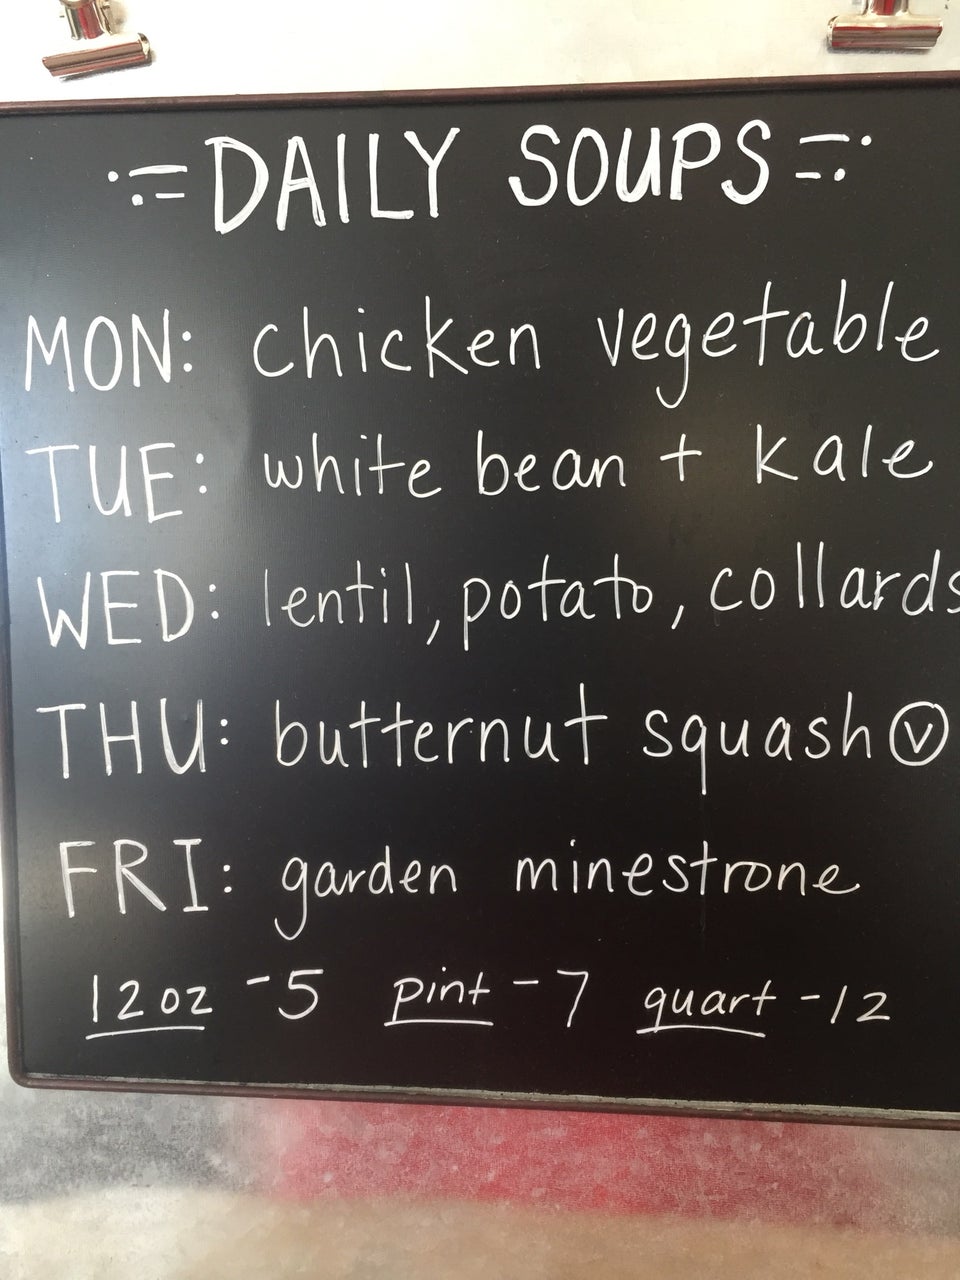 DAILY SOUPS
MON: chicken vegetable
TUE: white bean + kale
WED: lentil, potato, collards
THU: butternut squash Ⓥ
FRI: garden minestrone
12 oz - 5 pint - 7 quart - 12